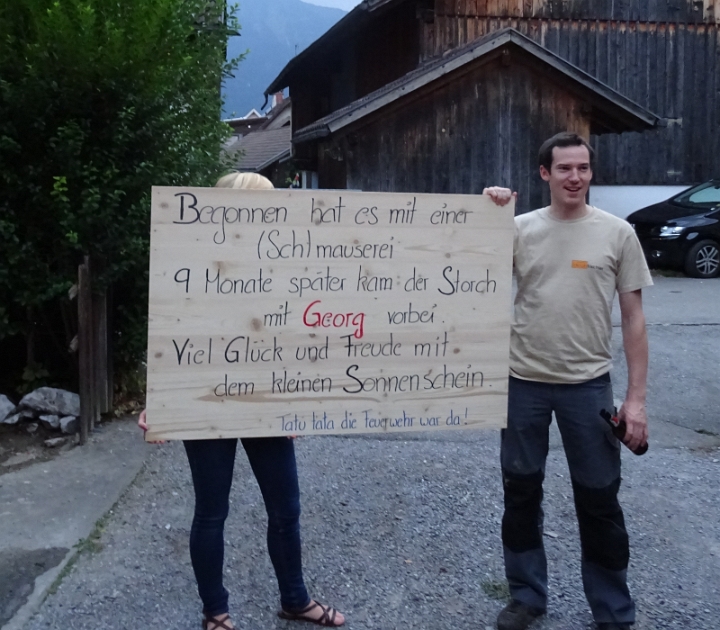 Begonnen hat es mit einer
(Sch)mauserei
9 Monate später kam der Storch
mit Georg vorbei.
Viel Glück und Freude mit
dem kleinen Sonnenschein.
Tatü tata die Feuerwehr war da!